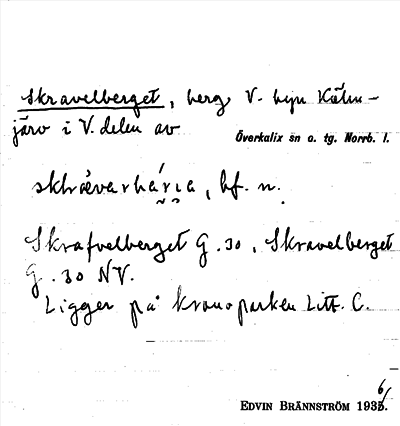 Skravelberget, berg V. byn Kälm-
järv i V. delen av
Överkalix sn o. tg. Norrb. l.
bf. n.
Skrafvelberget G. 30, Skravelberget
G. 30 NV.
Ligger på kronoparken Litt. C.
EDVIN BRÄNNSTRÖM 1936.